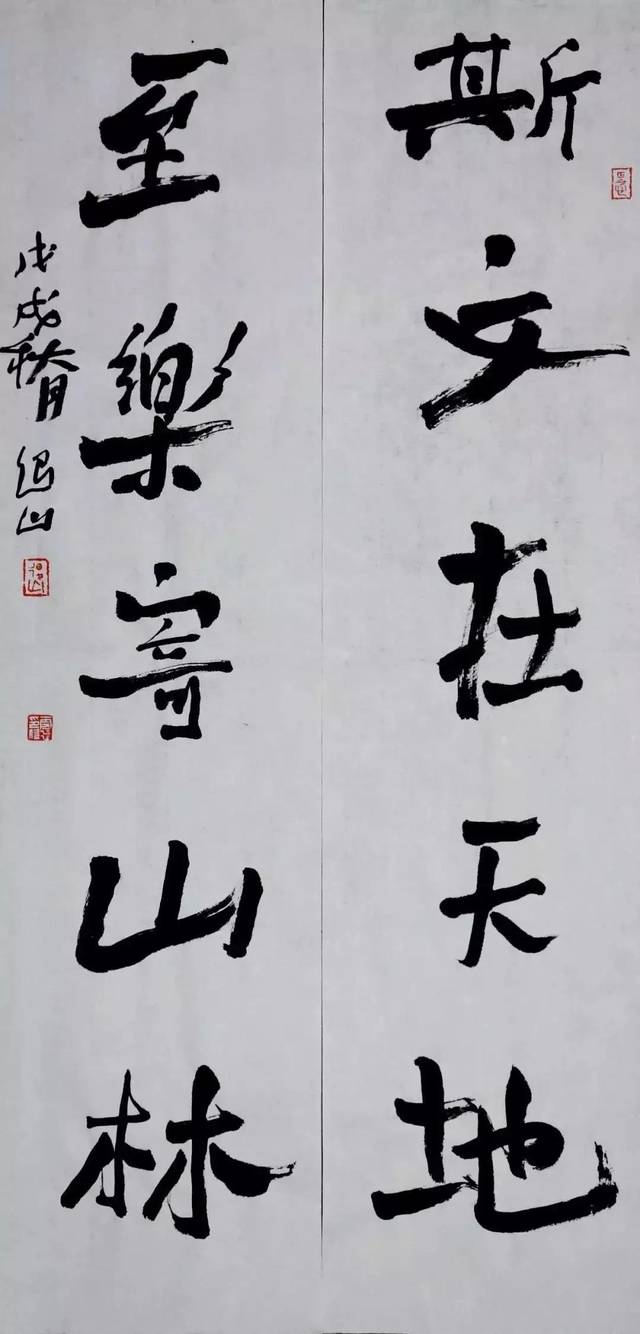 斯文在天地
至樂寄山林
戊戌秋月
山